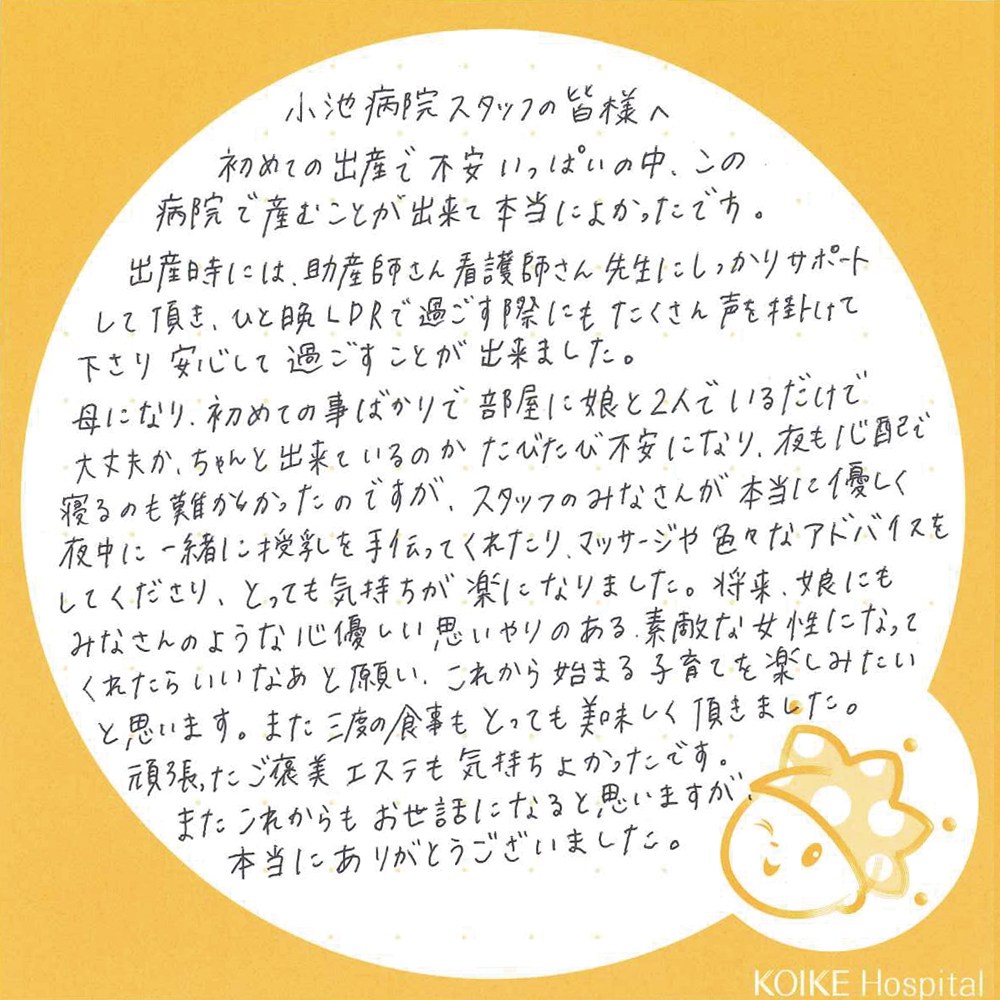 小池病院スタッフの皆様へ
初めての出産で不安いっぱいの中、この
病院で産むことが出来て本当によかったです。
出産時には、助産師さん看護師さん先生にしっかりサポート
して頂き、ひと晩LDRで過ごす際にもたくさん声を掛けて
下さり安心して過ごすことが出来ました。
母になり、初めての事ばかりで部屋に娘と2人でいるだけで
大丈夫か、ちゃんと出来ているのかたびたび不安になり、夜も心配で
寝るのも難かしかったのですが、スタッフのみなさんが本当に優しく
夜中に一緒に授乳を手伝ってくれたり、マッサージや色々なアドバイスを
してくださり、とっても気持ちが楽になりました。将来、娘にも
みなさんのような心優しい思いやりのある、素敵な女性になって
くれたらいいなあと願い、これから始まる子育てを楽しみたい
と思います。また三度の食事もとっても美味しく頂きました。
頑張ったご褒美エステも気持ちよかったです。
またこれからもお世話になると思いますが、
本当にありがとうございました。
KOIKE Hospital